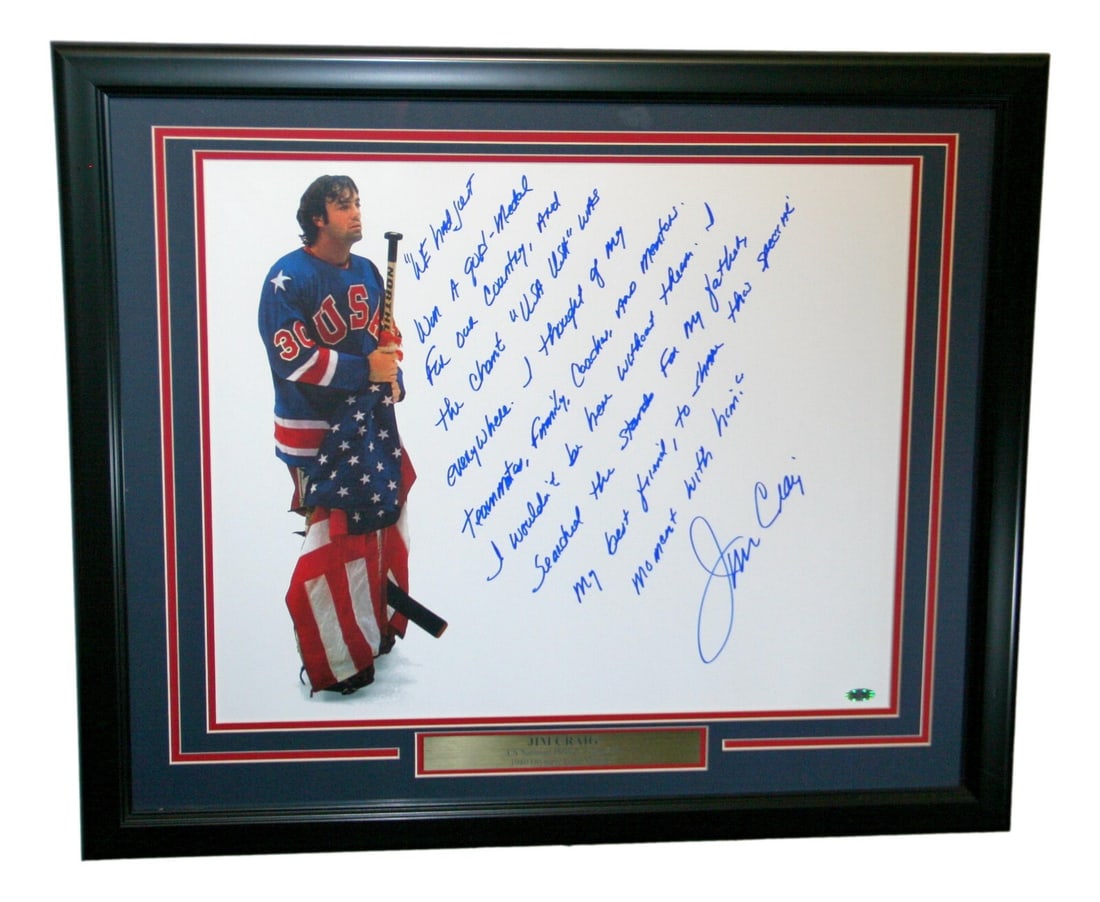 "WE HAD JUST
Won A gold-Medal
For our Country, And
the chant "USA USA" WAS
everywhere. I thought of my
teammates, Family, Coaches, And mentors.
I wouldn't be here without them. I
Searched the stands For my father,
my best friend, to share this special
moment with him."
Jim Craig
30 USA
JIM CRAIG
US National
1980 Olympic